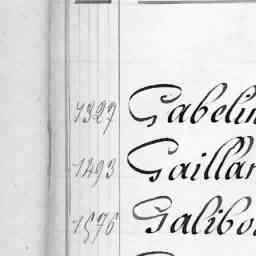 1327 Gabelin
1493 Gaillar
1576 Galibo